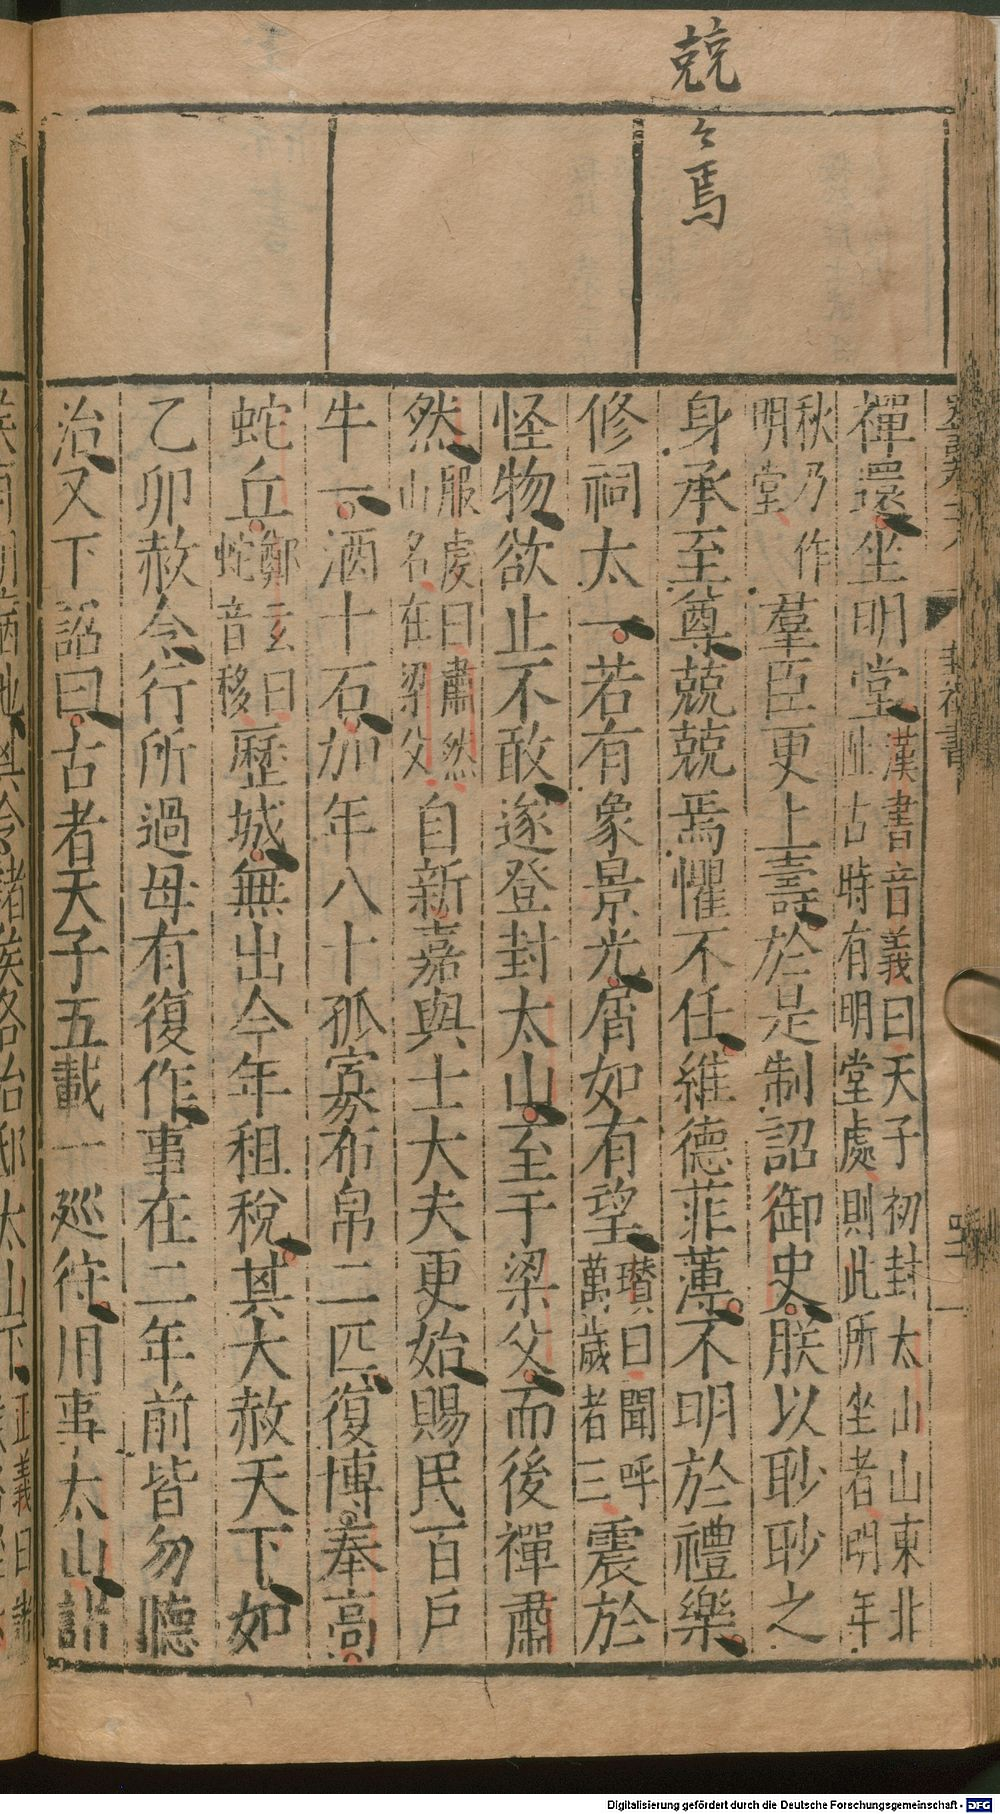 兢〻焉
禪還坐明堂漢書音義曰天子初封太山山東北阯古時有明堂處則此所坐者明年
秋乃作明堂羣臣更上壽於是制詔御史朕以眇眇之
身承至尊兢兢焉懼不任維德菲薄不明於禮樂
修祠太一若有象景光屑如有望瓚曰聞呼萬歲者三震於
怪物欲止不敢遂登封太山至于梁父而後禪肅
然服虔曰肅然山名在梁父自新嘉與士大夫更始賜民百戶
牛一酒十石加年八十孤寡布帛二匹復博奉高
蛇丘鄭玄曰蛇音移歷城無出今年租稅其大赦天下如
乙卯赦令行所過毋有復作事在二年前皆勿聽
治又下詔曰古者天子五載一巡狩用事太山諸
Digitalisierung gefördert durch die Deutsche Forschungsgemeinschaft - DFG